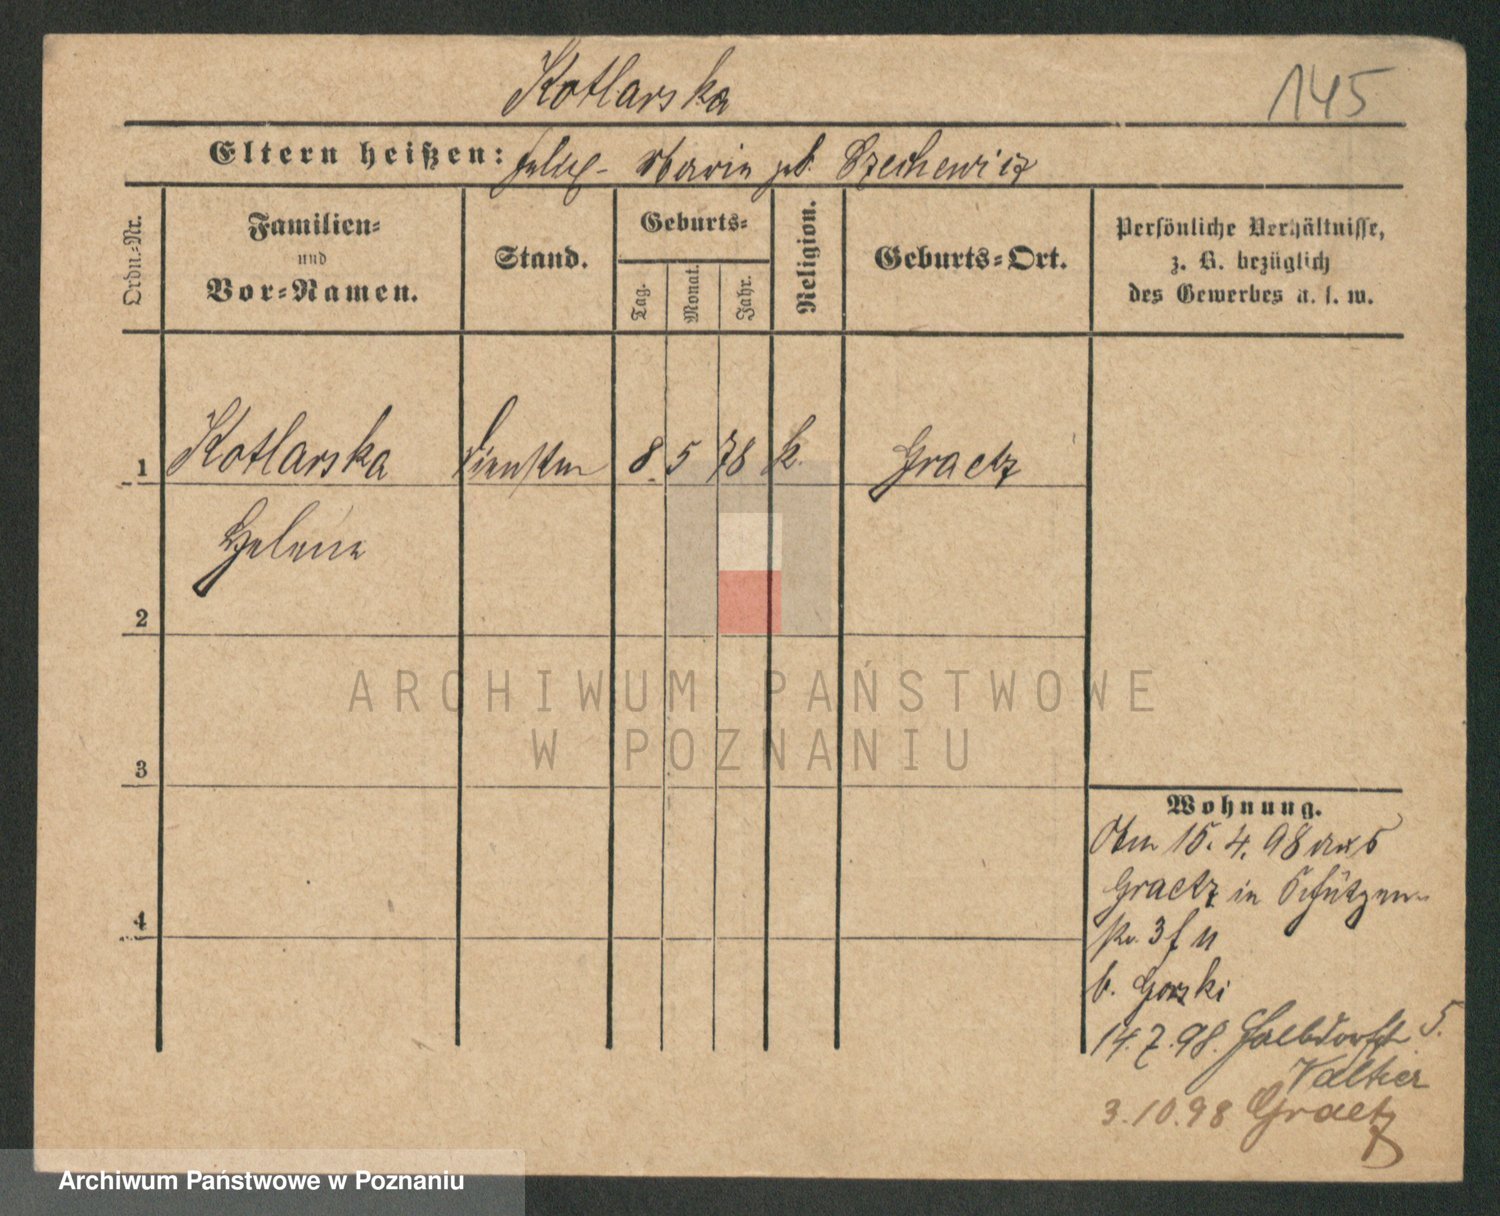 Kotlarska
145
Eltern heißen: Felix - Marie geb.
Ordn.-Nr.
Familien-
und
Vor-Namen.
Stand.
Geburts-
Tag.
Monat.
Jahr.
Religion.
Geburts-Ort.
Persönliche Verhältnisse,
z. B. bezüglich
des Gewerbes u. s. w.
1 Kotlarska 8. 5 78 k. Graetz
Helene
2
3
4
ARCHIWUM PAŃSTWOWE
W POZNANIU
Wohnung.
Am 15. 4. 98 aus
Graetz in Schützen-
str. 3
b. Gorski
14. 7. 98. Halbdorfst. 5.
3. 10. 98 Graetz
Archiwum Państwowe w Poznaniu